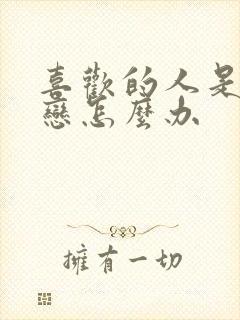 喜歡的人是
戀怎麼办
擁有一切